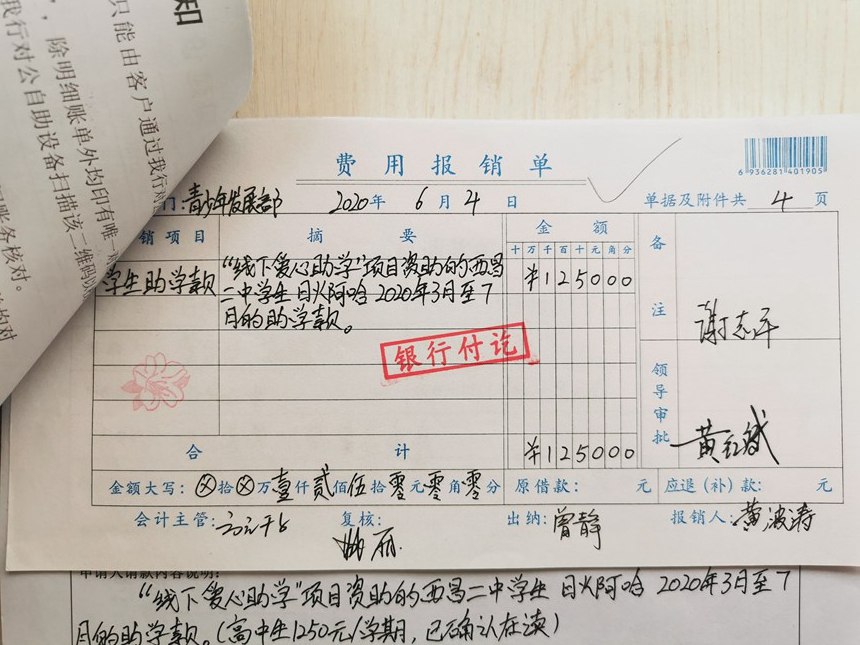 知
只能由客户通过我行
，除明细账单外均印有唯一
我行对公自助设备扫描该二维码
账务核对。
费用报销单
6 936281 401905
门：青少年发展部 2020年 6月 4日 单据及附件共 4 页
销项目 摘要 金额 备注
十万千百十元角分
学生助学款 “线下爱心助学”项目资助的西昌 ¥125000
二中学生 日火阿哈 2020年3月至7
月的助学款。
谢志平
银行付讫
领导审批
合计 ¥125000
金额大写：ⓧ拾ⓧ万壹仟贰佰伍拾零元零角零分 原借款： 元 应退（补）款： 元
会计主管： 复核： 出纳：曾静 报销人：黄波涛
申请人请款内容说明：
“线下爱心助学”项目资助的西昌二中学生 日火阿哈 2020年3月至7
月的助学款。（高中生1250元/学期，已确认在读）